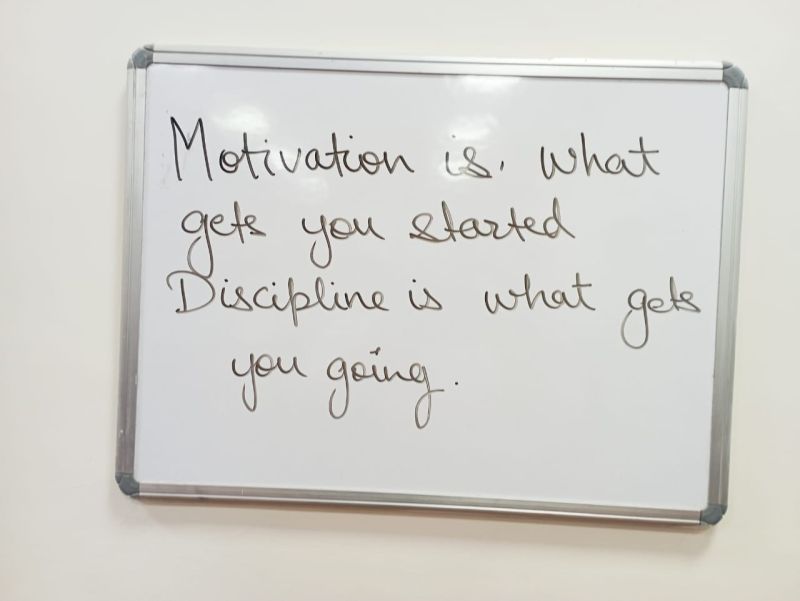 Motivation is. what
gets you started
Discipline is what gets
you going.